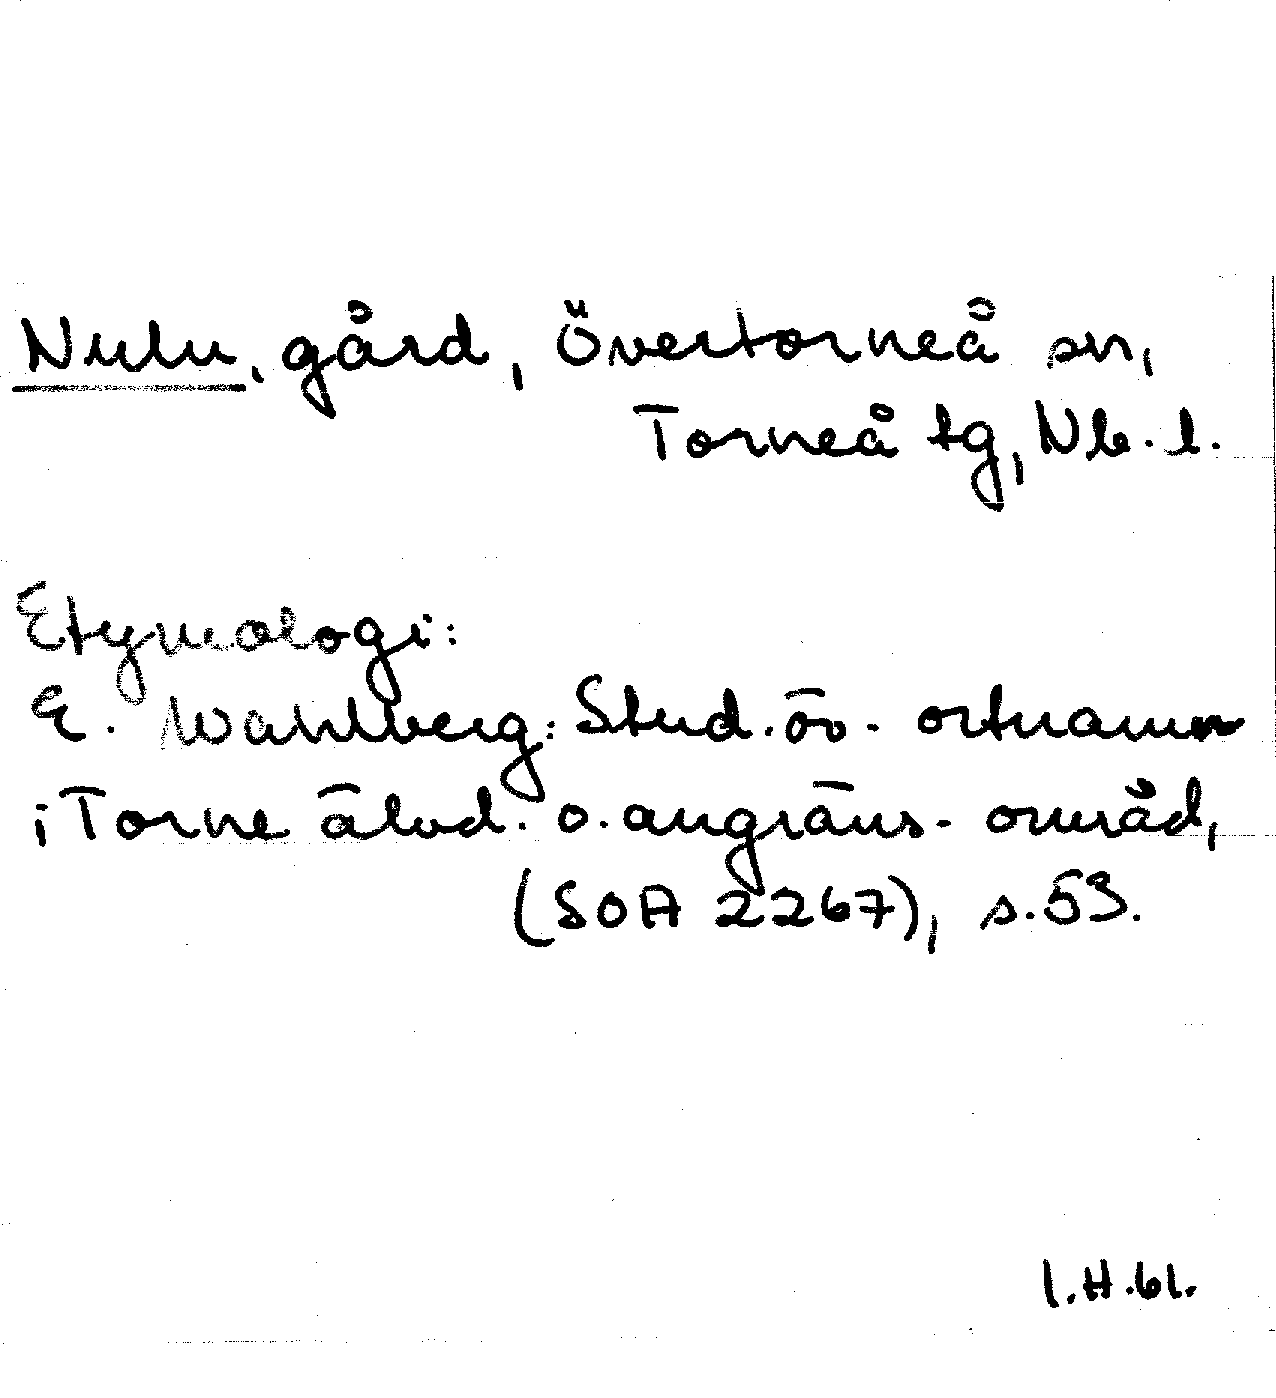 Nulu, gård, Övertorneå sn,
Torneå tg, Nb. l.
Etymologi:
E. Wahlberg: Stud. öv. ortnamn
i Torne älvd. o. angräns. områd,
(SOA 2267), s.53.
I.H.61.